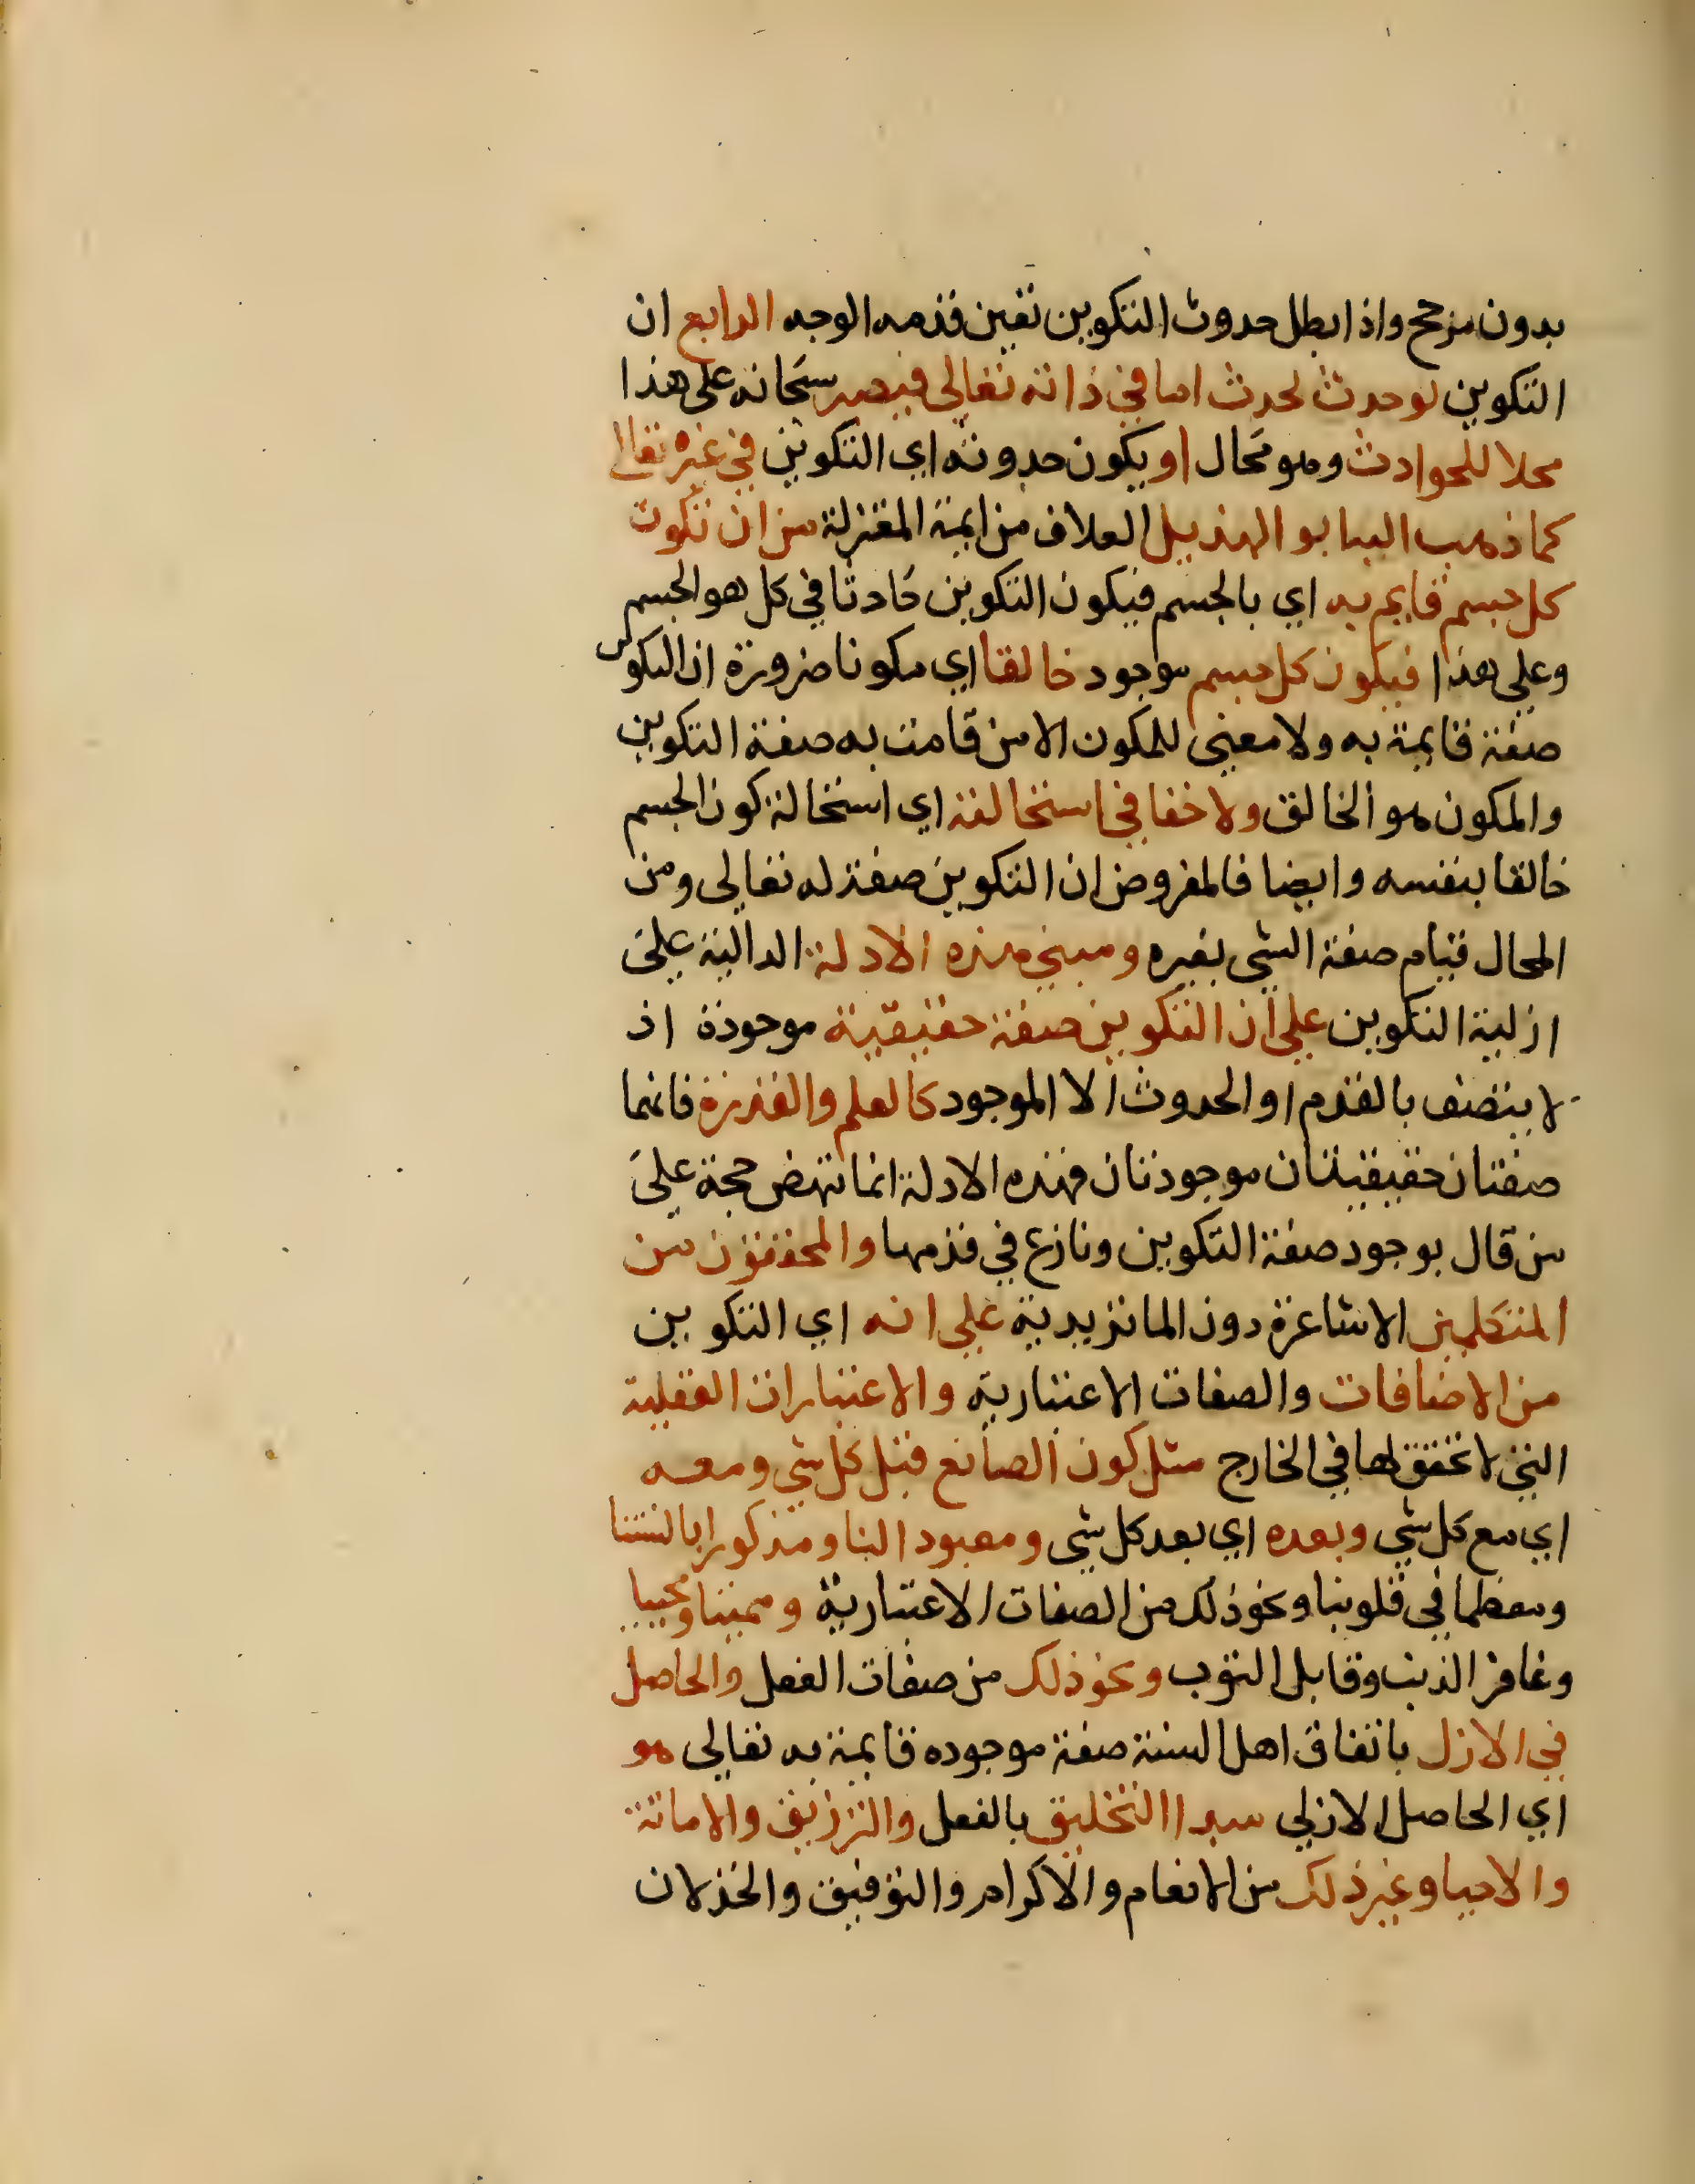 بدون مرجح واذا بطل حدوث التكوين تعين قدمه الوجه الرابع ان
التكوين لو حدث لحدث اما في ذاته تعالى فيصير سبحانه على هذا
محلا للحوادث وهو محال او يكون حدوثه اي التكوين في غيره تعالى
كما ذهب اليه ابو الهذيل العلاف من ايمة المعتزلة من ان تكون
كل جسم قايم به اي بالجسم فيكون التكوين حادثا في كل هو الجسم
وعلى هذا فيكون كل جسم موجود خالقا اي مكونا ضرورة ان التكوين
صفة قايمة به ولا معنى للمكون الا من قامت به صفة التكوين
والمكون هو الخالق ولا خفا في استحالته اي استحالة كون الجسم
خالقا بنفسه وايضا فالمفروض ان التكوين صفة له تعالى ومن
المحال قيام صفة الشي بغيره ومبنى هذه الادلة الدالية على
ازلية التكوين على ان التكوين صفة حقيقية موجودة اذ
لا يتصف بالقدم او الحدوث الا الموجود كالعلم والقدرة فانهما
صفتان حقيقيتان موجودتان فهذه الادلة انما تنهض حجة على
من قال بوجود صفة التكوين ونازع في قدمها والمحققون من
المتكلمين الاشاعرة دون الماتريدية على انه اي التكوين
من الاضافات والصفات الاعتبارية والاعتبارات العقلية
التي لا تحقق لها في الخارج مثل كون الصانع قبل كل شي ومعه
اي مع كل شي وبعده اي بعد كل شي ومعبود النا ومذكورا بالسنتنا
ومعظما في قلوبنا ونحو ذلك من الصفات الاعتبارية ومميتا ومحييا
وغافر الذنب وقابل التوب ونحو ذلك من صفات الفعل والحاصل
في الازل باتفاق اهل السنة صفة موجوده قايمة به تعالى هو
اي الحاصل الازلي مبدا التخليق بالفعل والترزيق والاماتة
والاحيا وغير ذلك من الانعام والاكرام والتوفيق والخذلان